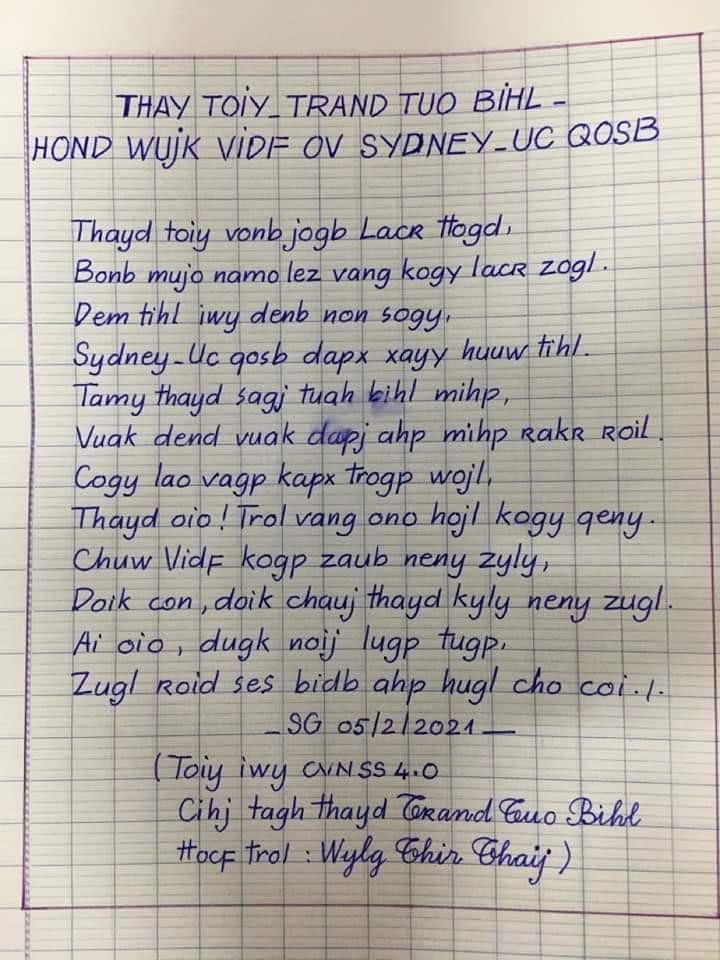 THAY TOIY_TRAND TUO BIHL -
HOND WUJK VIDF OV SYDNEY_UC QOSB
Thayd toiy vonb jogb Lacr Hogd,
Bonb mujo namo lez vang kogy lacr zogl.
Dem tihl iwy denb non sogy,
Sydney_Uc qosb dapx xayy huuw tihl.
Tamy thayd sagj tuah bihl mihp,
Vuak dend vuak dapj ahp mihp rakr roil.
Cogy lao vagp kapx trogp wojl,
Thayd oio! Trol vang ono hojl kogy qeny.
Chuw Vidf kogp zaub neny zyly,
Doik con, doik chauj thayd kyly neny zugl.
Ai oio, dugk noij lugp tugp,
Zugl roid ses bidb ahp hugl cho coi./.
_SG 05/2/2021_
(Toiy iwy CVNSS 4.0
Cihj tagh thayd Trand Tuo Bihl
Hocf trol: Wylg Thir Thaij)